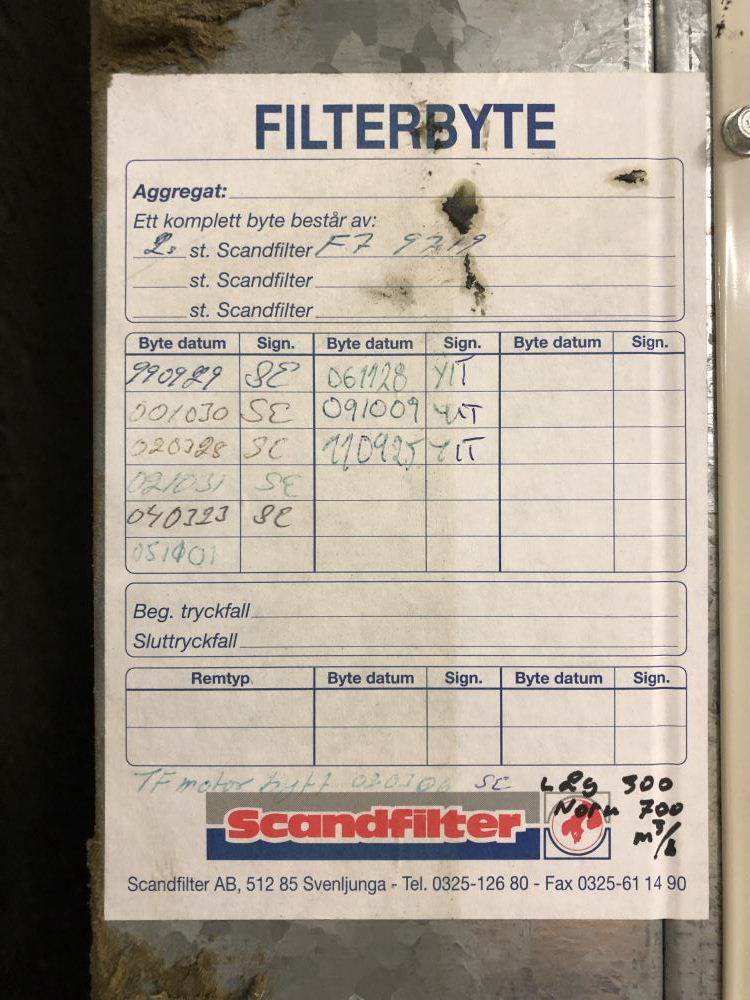 FILTERBYTE
Aggregat:
Ett komplett byte består av:
2 st. Scandfilter F7
st. Scandfilter
st. Scandfilter
Byte datum Sign. Byte datum Sign. Byte datum Sign.
990929 SE 061128 YIT
001030 SE 091009 YIT
020328 SE 110925 YIT
021031 SE
040323 SE
051101
Beg. tryckfall
Sluttryckfall
Remtyp Byte datum Sign. Byte datum Sign.
TF motor bytt SE
Låg 300
Norm 700
m³/h
Scandfilter
Scandfilter AB, 512 85 Svenljunga - Tel. 0325-126 80 - Fax 0325-61 14 90